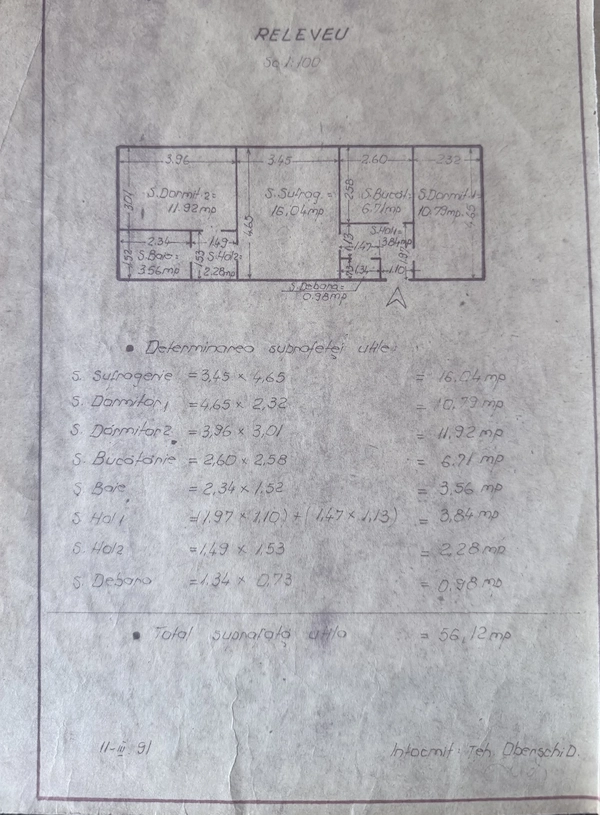 RELEVEU
Sc 1:100
3.96 3.45 2.60 2.32
3.01 4.65 2.58 4.65
S.Dormit.2= S.Sufrag.= S.Bucăt.= S.Dormit.1=
11.92mp 16.04mp 6.71mp 10.79mp.
2.34 1.49 1.13 1.47 S.Hol1=
3.84mp
1.52 S.Baie= 1.53 S.Hol2= 1.97
3.56mp 2.28mp 1.34 1.10
S.Debara=
0.98mp
• Determinarea suprafeţei utile:
S. Sufragerie = 3,45 × 4,65 = 16.04 mp
S. Dormitor1 = 4,65 × 2,32 = 10.79 mp
S. Dormitor2 = 3,96 × 3,01 = 11.92 mp
S. Bucătărie = 2,60 × 2,58 = 6.71 mp
S Baie = 2,34 × 1.52 = 3,56 mp
S Hol1 =(1.97 × 1.10) + (1.47 × 1.13) = 3,84 mp
S. Hol2 = 1,49 × 1.53 = 2,28 mp
S. Debara = 1,34 × 0,73 = 0,98 mp
• Total suprafaţă utila = 56,12 mp
11-III 91 Intocmit: Teh. Oberschi D.